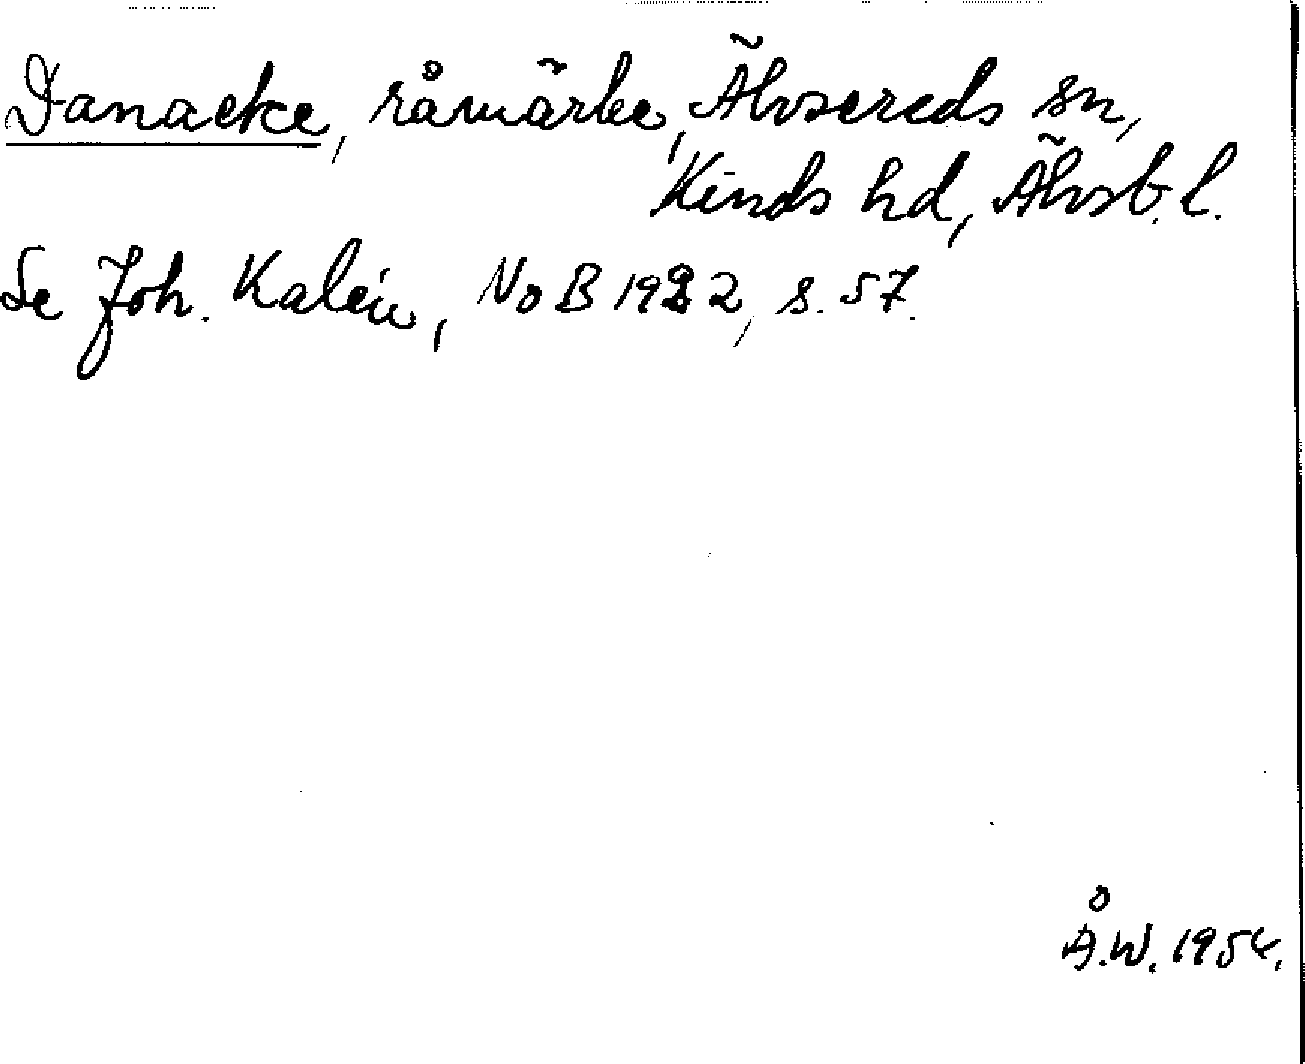 Danacke, råmärke, Älvsereds sn,
Kinds hd, Älvsb. l.
Se Joh. Kalén, NoB 1922, s. 57.
Å.W. 1954.